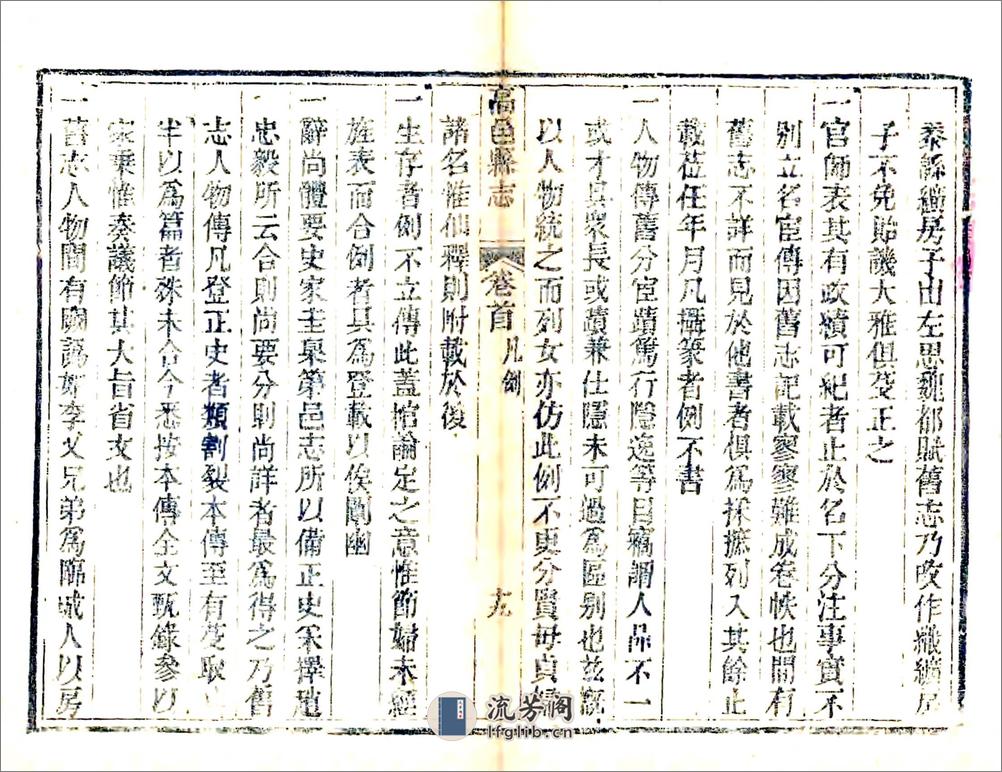 泰緜纊房子出左思魏都賦舊志乃改作纖纊房
子不免貽譏大雅俱芟正之
一官師表其有政績可紀者止於名下分注事實不
別立名宦傳因舊志記載寥寥難成卷帙也間有
舊志不詳而見於他書者俱爲採摭列入其餘止
載莅任年月凡攝篆者例不書
一人物傳舊分宦蹟篤行隱逸等目竊謂人品不一
或才具衆長或蹟兼仕隱未可過爲區別也玆槪
以人物統之而列女亦仿此例不更分賢母貞婦
高邑縣志
卷首
凡例
十九
諸名惟仙釋則附載於後
一生存者例不立傳此蓋棺論定之意惟節婦未經
旌表而合例者具爲登載以俟闡幽
一辭尚體要史家圭臬第邑志所以備正史采擇趙
忠毅所云合則尚要分則尚詳者最爲得之乃舊
志人物傳凡登正史者類割裂本傳至有芟取
半以爲篇者殊未合今悉按本傳全文甄錄參以
家乘惟奏議節其大旨省文也
一舊志人物間有闕譌如李乂兄弟爲臨城人以房
流芳阁
lfglib.cn